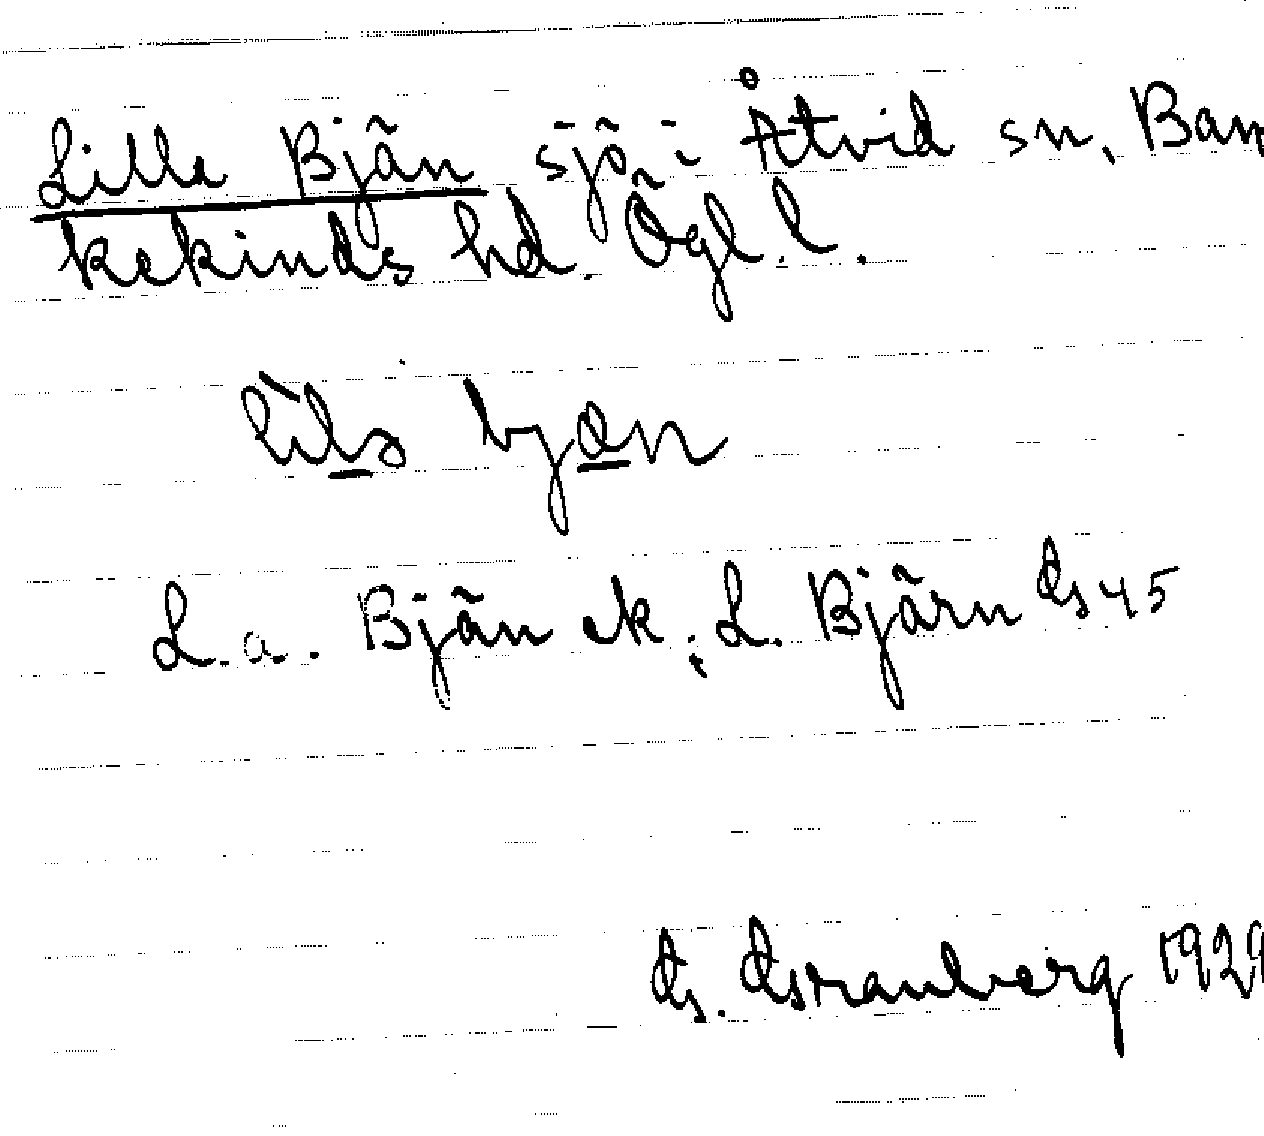 Lilla Bjän sjö i Åtvid sn, Ban
kekinds hd. Ögl. l.
lìla bjæn
L. a. Bjän ek; L. Bjärn Gs 45
G. Granberg 1929